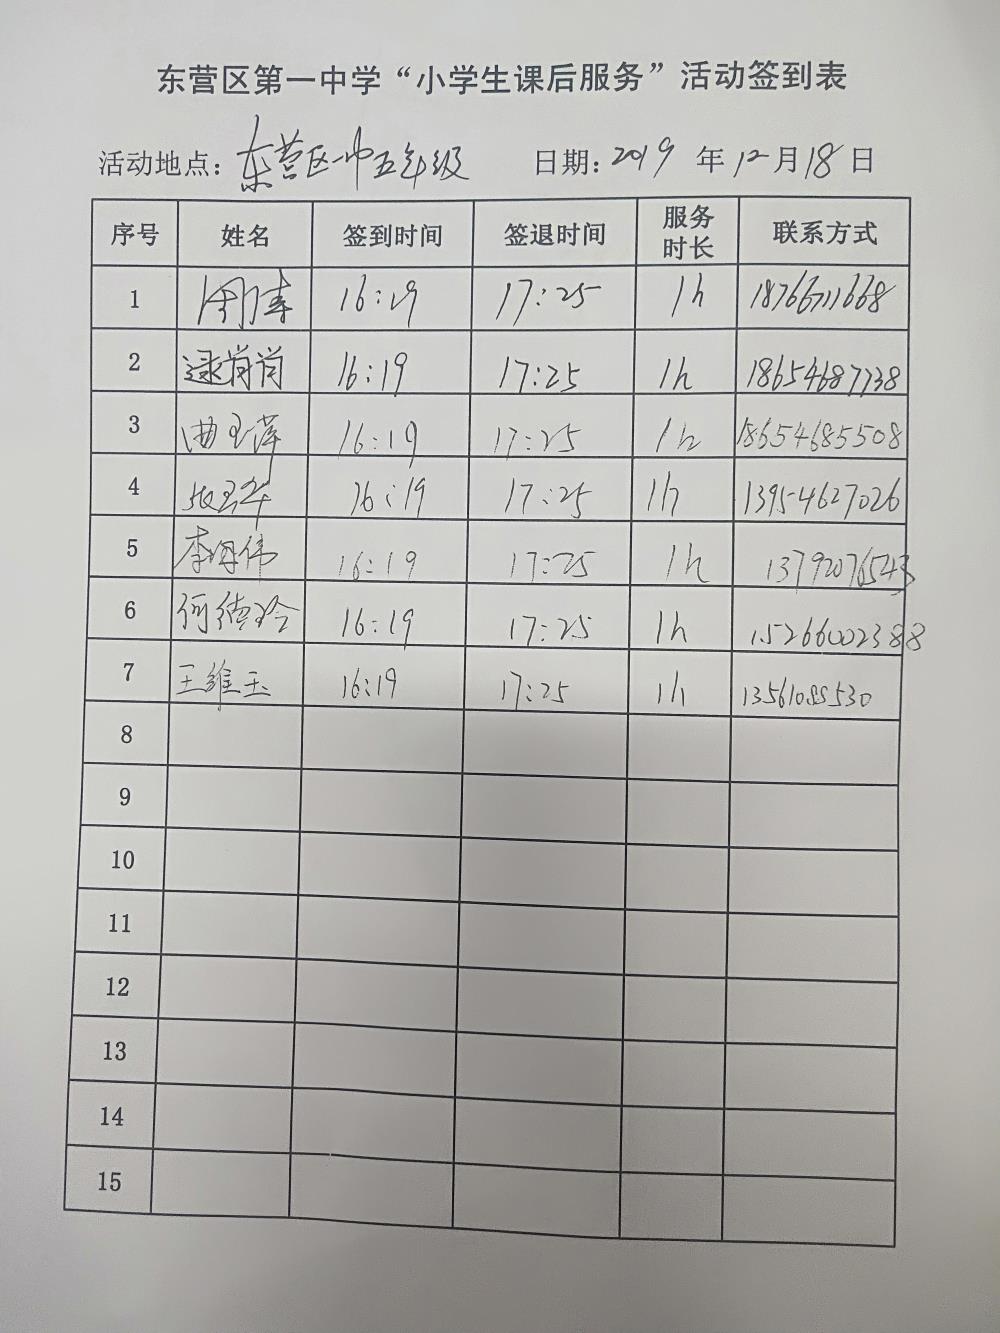 东营区第一中学“小学生课后服务”活动签到表
活动地点：东营区一中五年级 日期：2019 年 12 月 18 日
序号 姓名 签到时间 签退时间 服务时长 联系方式
1 16:19 17:25 1h 18766711668
2 逯肖肖 16:19 17:25 1h 18654687738
3 曲玉萍 16:19 17:25 1h 18654685508
4 张玉华 16:19 17:25 1h 13954627026
5 16:19 17:25 1h 13792076543
6 何德玲 16:19 17:25 1h 15266002388
7 王维玉 16:19 17:25 1h 1356108530
8
9
10
11
12
13
14
15